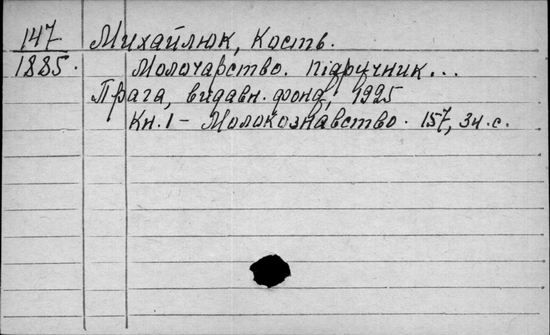 147 Михайлюк, Кость.
1885. Молочарство. Підручник...
Прага, видавн. фонд, 1925
Кн. 1 - Молокознавство. 157, 3ч. с.